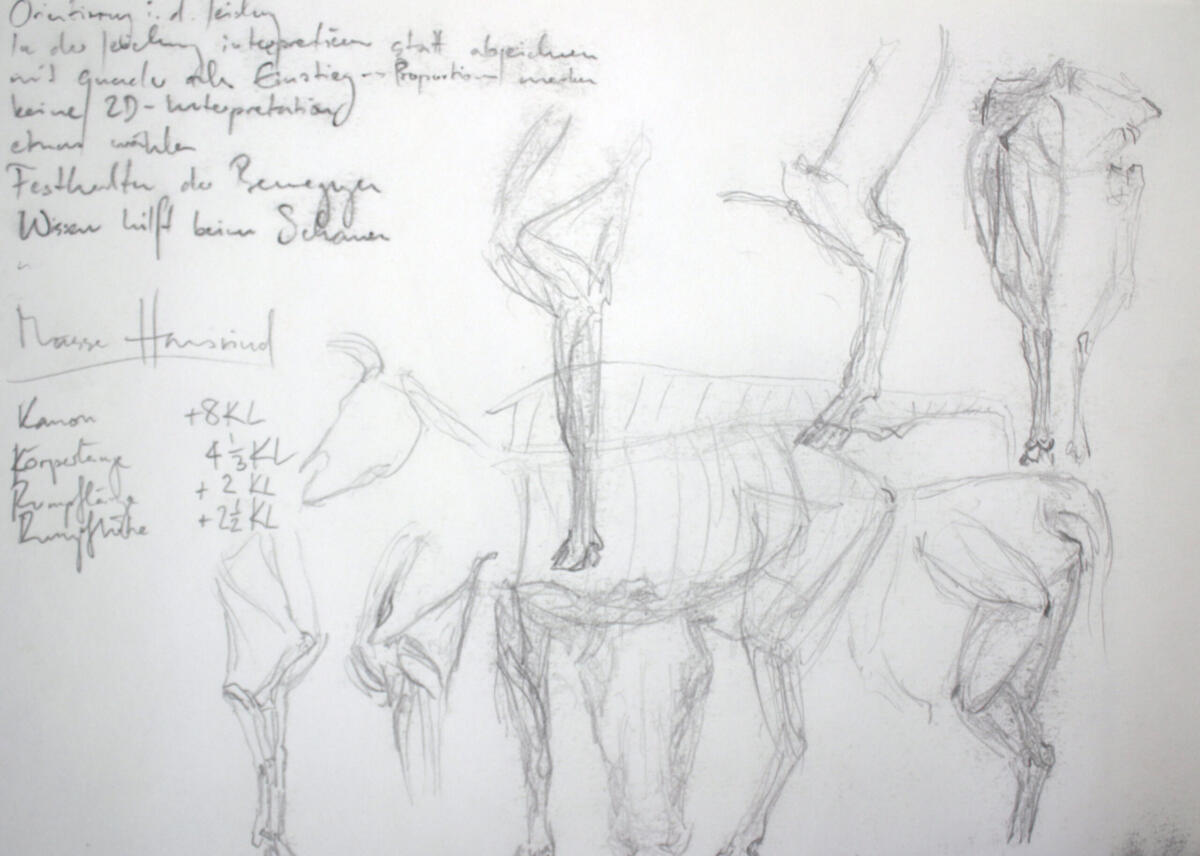 Orientierung i. d. Zeichng
In der Zeichnung interpretieren statt abzeichnen
mit Quader als Einstieg → Proportion
keine 2D-Interpretation
etwas wählen
Festhalten der Bewegungen
Wissen hilft beim Schauen
Masse Hausrind
Kanon +8KL
Körperlänge 4 1/3 KL
Rumpflänge + 2 KL
Rumpfhöhe + 2 1/2 KL